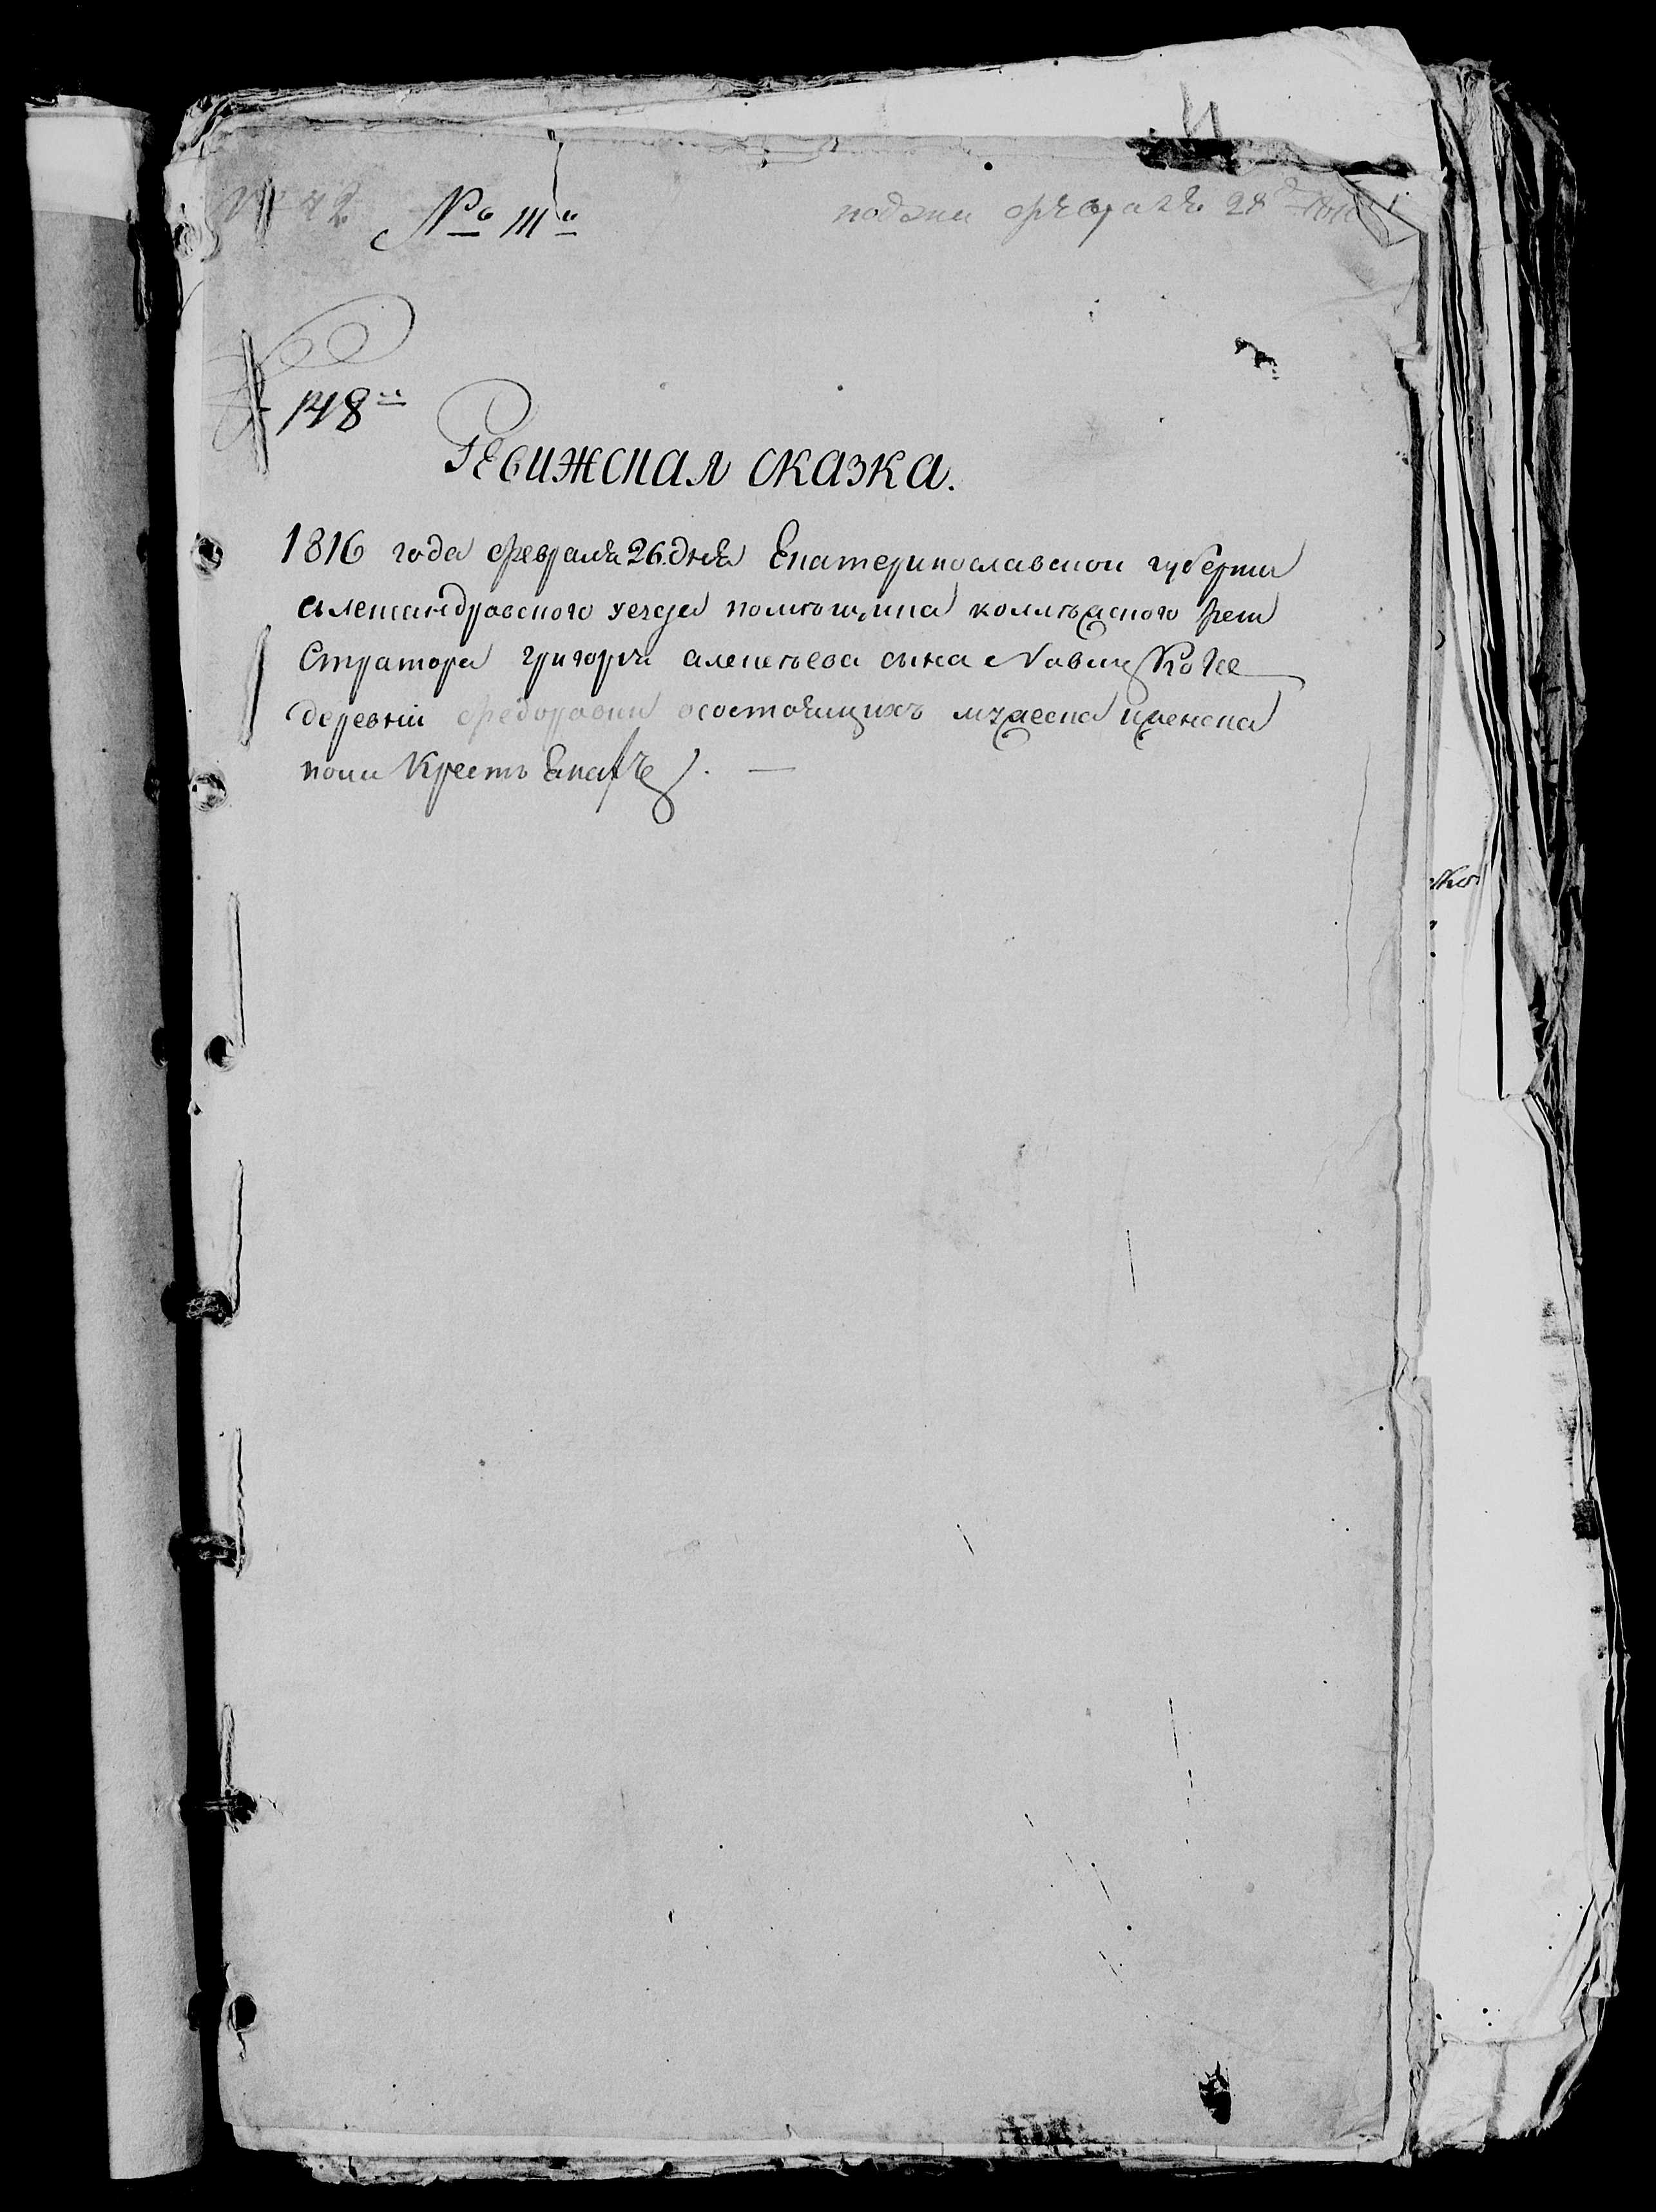 № 42 № 111й подани февраля 28
148й
Ревижская сказка.
1816 года февраля 26. дня Екатеринославской губерни
Александровского уезда помѣщика коллѣжского реги
стратора григория алексѣева сына
деревни федоровки осостоящихъ мужеска иженска
пола Крестьянахъ.